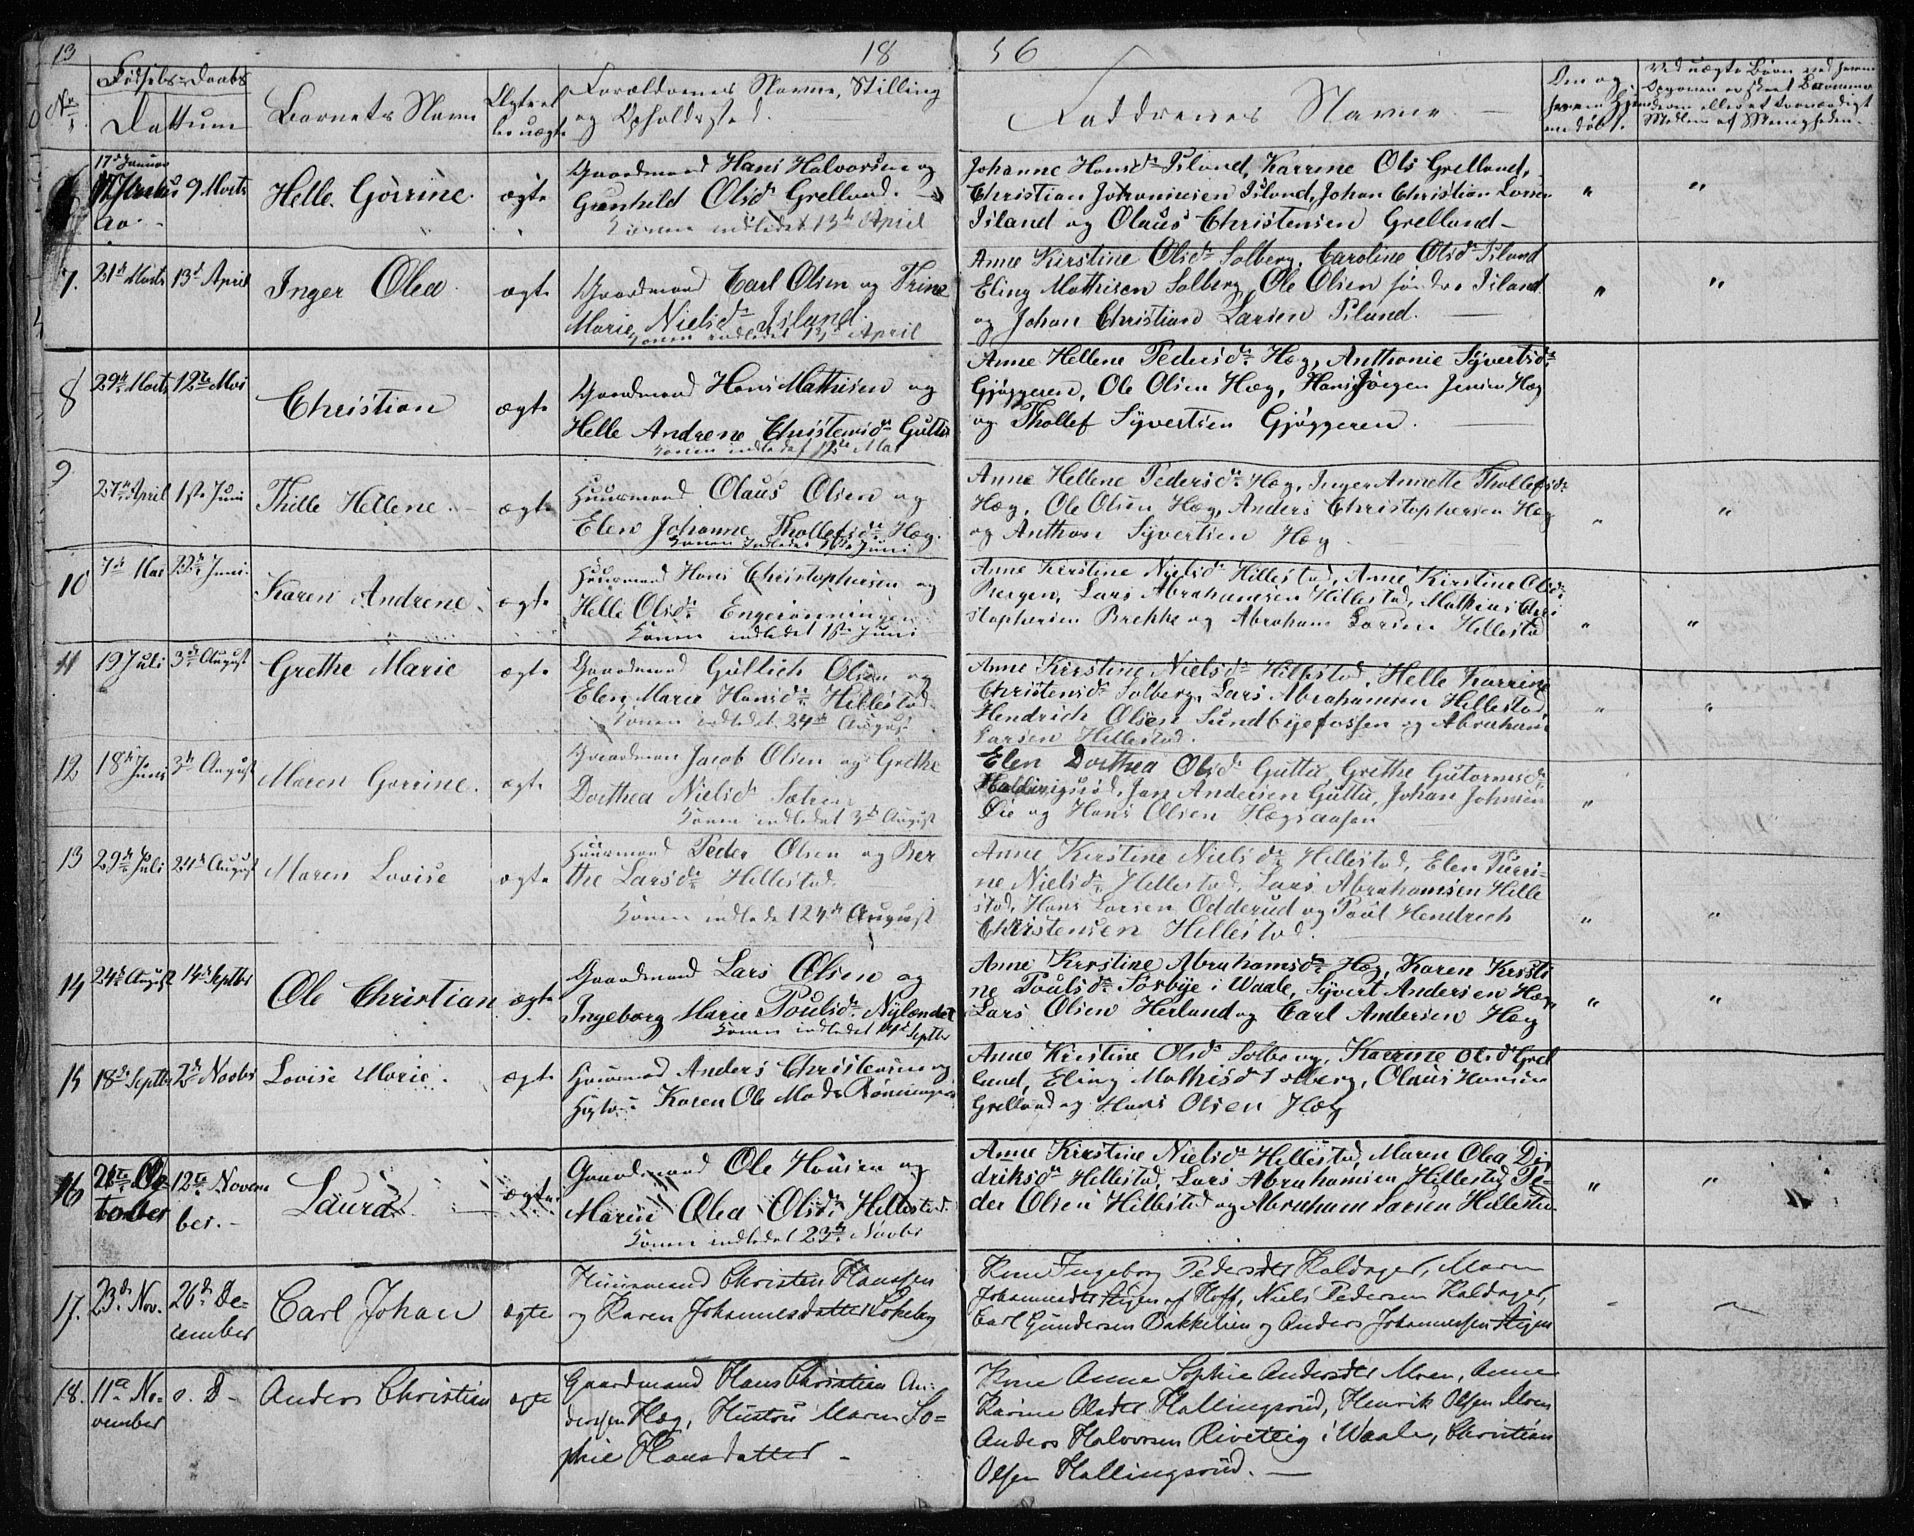 13
18 56
No
Fødsels- Daabs
Dattum
Barnets Navn
Ægte el
ler uægte
Forældrenes Navne, Stilling
og Opholdssted.
Faddrenes Navne.
Om og
hvem Hjem
medøbt.
17de Januar
9 Marts
Helle Gorrine.
ægte
Gaardmand Hans Halvorsen og
Gunhild Olsdr Grelland.
Konen indledet 13de April
Johanne Hansdr Island, Karrine Ols Grelland,
Christian Johannesen Island, Johan Christian Larsen
Island og Olaus Christensen Grelland
7.
21de Marts
13de April
Inger Olea
ægte
Gaardmand Carl Olsen og Trine
Marie Nielsdr Island.
Konen indledet 13de April
Anne Kirstine Olsdr Solberg, Caroline Olsdr Island
Eling Mathisen Solberg, Ole Olsen søndre Island
og Johan Christian Larsen Island.
8
29de Marts
12te Mai
Christian
ægte
Gaardmand Hans Mathisen og
Helle Andrene Christensdr Guttu
Konen indledet 12te Mai
Anne Hellene Pedersdr Hæg, Anthonie Syvertsdr
Gjøggeren, Ole Olsen Hæg, Hans Jørgen Jensen Hæg
og Thollef Syvertsen Gjøggeren.
9
27de April
1ste Juni
Thille Hellene.
ægte
Huusmand Olaus Olsen og
Elen Johanne Thollefsdr Hæg.
Konen indledet 1ste Juni
Anne Hellene Pedersdr Hæg, Inger Annette Thollefsdr
Hæg, Ole Olsen Hæg, Anders Christophersen Hæg
og Anthon Syvertsen Hæg.
10
7de Mai
22de Juni.
Karen Andrene.
ægte
Huusmand Hans Christophersen og
Helle Olsdr Engerønningen
Konen indledet 1ste Juni
Anne Kirstine Nielsdr Hillestad, Anne Kirstine Olsdr
Bergen, Lars Abrahamsen Hillestad, Mathias Chri
stophersen Brekke og Abraham Larsen Hillestad
11
19 Juli
3de August
Grethe Marie
ægte
Gaardmand Gullich Olsen og
Elen Marie Hansdr Hillestad.
Konen indledet 24de August
Anne Kirstine Nielsdr Hillestad, Helle Karrine
Christensdr Solberg, Lars Abrahamsen Hillestad,
Hendrich Olsen Sundbyefossen og Abraham
Larsen Hillestad.
12
18de Juni
3de August
Maren Gorrine.
ægte
Gaardman Jacob Olsen og Grethe
Dorthea Nielsdr Sætren
Konen indledet 3de August
Elen Dorthea Olsdr Guttu, Grethe Gutormsdr
Jan Andersen Guttu, Johan Johnsen
Øie og Hans Olsen Hægsaasen
13
29de Juli
24de August
Maren Lovise
ægte
Huusmand Peder Olsen og Ber
the Larsdr Hillestad.
Konen indledet 24de August
Anne Kirstine Nielsdr Hillestad, Elen Turi-
ne Nielsdr Hillestad, Lars Abrahamsen Hille
stad, Hans Larsen Odderud og Poul Hendrich
Christensen Hillestad.
14
24de August
14de Septber
Ole Christian
ægte
Gaardmand Lars Olsen og
Ingeborg Marie Poulsdr Nylændet
Konen indledet 14de Septber
Anne Kirstine Abrahamsdr Hæg, Karen Kirsti
ne Poulsdr Sørbye i Waale, Syvert Andersen Hæg,
Lars Olsen Herland og Carl Andersen Hæg
15
18de Septber
2de Novbr
Lovise Marie.
ægte
Huusmand Anders Christensen og
Hustrue Karen Ole Madsdr Rønningen
Anne Kirstine Olsdr Solberg, Karrine Olsdr Grel
land, Eling Mathisdr Solberg, Olaus Hansen
Grelland og Hans Olsen Hæg
16
12te Novem
ber.
Laura.
ægte
Gaardmand Ole Hansen og
Maren Olea Olsdr Hillestad.
Konen indledet 23de Novbr
Anne Kirstine Nielsdr Hillestad, Maren Olea Di
driksdr Hillestad, Lars Abrahamsen Hillestad, Pe-
der Olsen Hillestad og Abraham Larsen Hillestad
17.
23de Nov.
26de De-
cember
Carl Johan
ægte
Huusmand Christen Hanssen
og Karen Johannesdatter Løkeberg
Kone Ingeborg Pedersdtr Kaldager, Maren
Johannesdtr Stigen af Hoff, Niels Pedersen Kaldager,
Carl Gundersen Bakkelien og Anders Johannessen Stigen
18.
11te No-
vember
s. D-
Anders Christian
ægte
Gaardmand Hans Christian An-
derssen Hæg, Hustru Maren So-
phie Hansdatter -
Kone Anne Sophie Andersdtr Moen, Anne
Karine Olsdtr Hallingsrud, Henrik Olsen Moen
Anders Halvorsen Rivetlig i Waale, Christian
Olsen Hallingsrud.